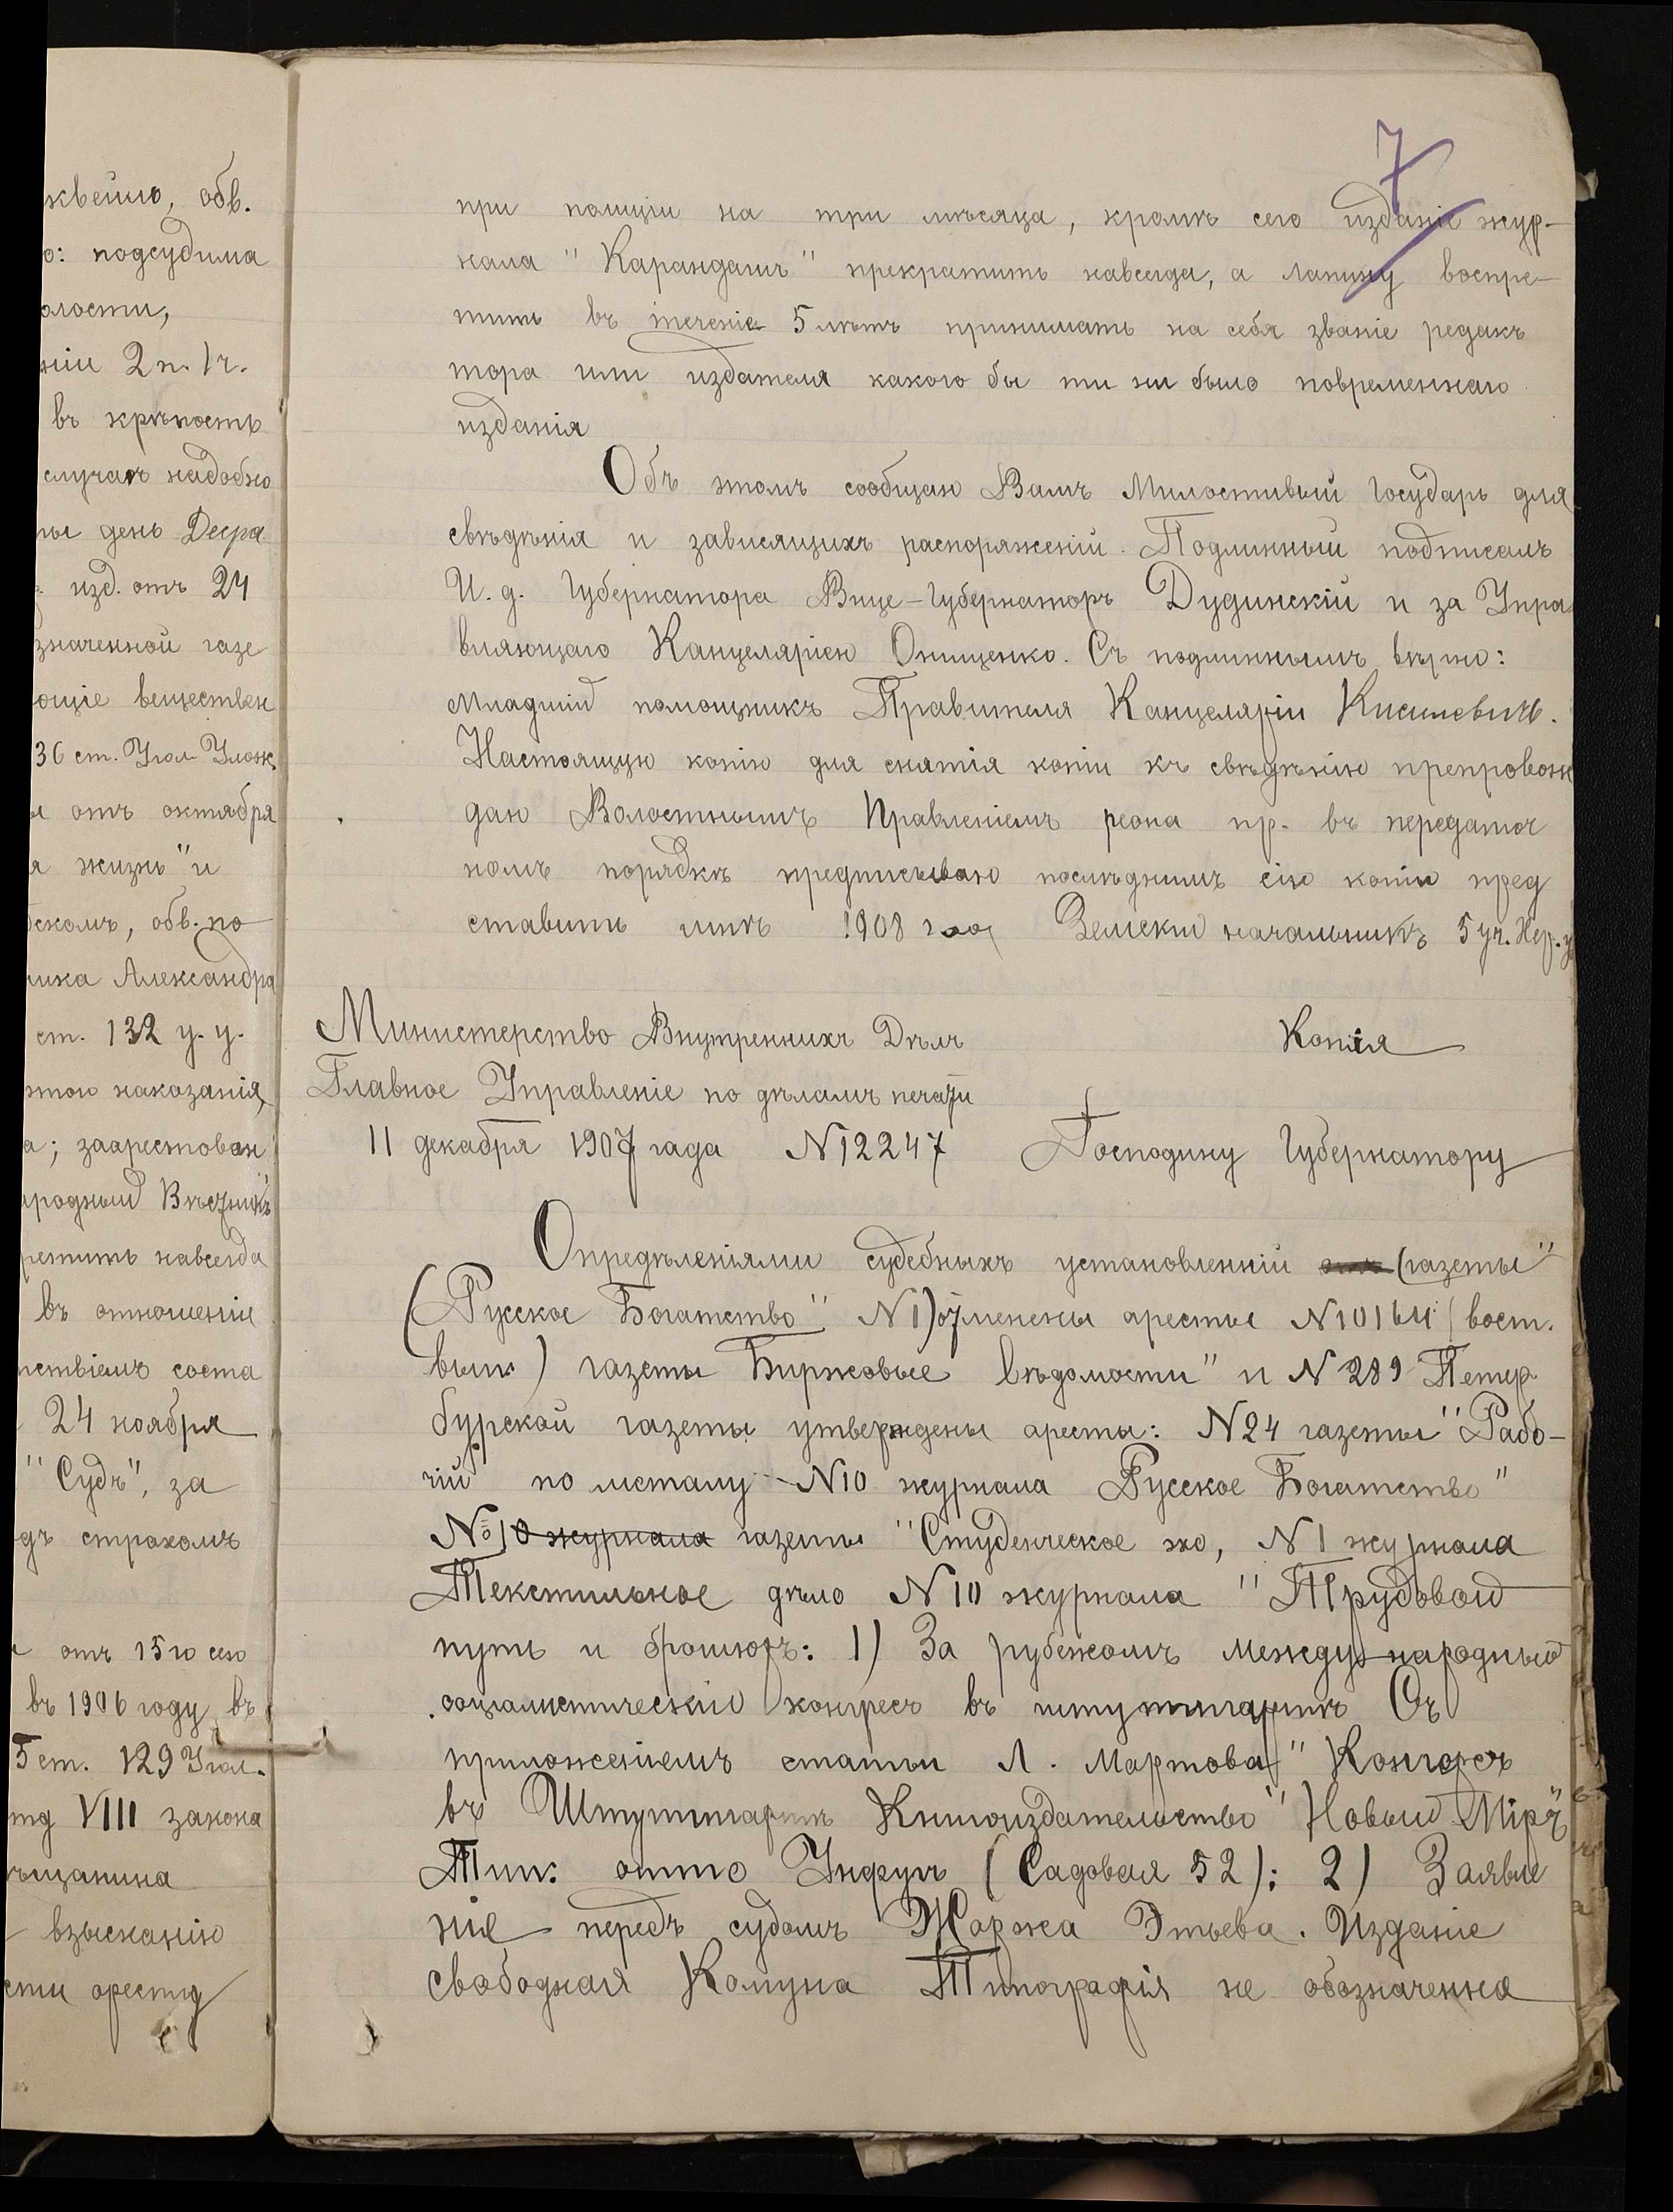 квейло, обв.
о: подсудима
олости,
ніи 2 п. 1 ч.
въ крѣпость
случаѣ надобно
ты день Десра
изд. отъ 24
значенной газе
ющіе веществен
36 ст. Угол Улож
отъ октября
я жизнь" и
скомъ, обв. по
ника Александра
ст. 132 у. у.
этою наказанія,
а; заарестован
ародный Вѣстникъ
ретить навсегда
въ отношеніи
тствіемъ соста
24 ноября
"Судъ", за
дъ страхомъ
отъ 15го сего
въ 1906 году въ
5 ст. 129 Угол.
VIII закона
ѣщанина
взысканію
сти аресту
7
при полиціи на три мѣсяца, кромѣ сего изданіе жур-
нала "Карандашъ" прекратить навсегда, а Лапину воспре-
тить въ теченіе 5 лѣтъ принимать на себя званіе редак
тора или издателя какого бы ти ни было повременнаго
изданія
Объ этомъ сообщаю Вамъ Милостивый Государь для
свѣдѣнія и зависящихъ распоряженій. Подлинный подписалъ
И. д. Губернатора Вице-Губернаторъ Дудинскій и за Упра
вляющаго Канцеляріею Онищенко. Съ подлиннымъ вѣрно:
Младшій помощникъ Правителя Канцеляріи Кисилевичъ.
Настоящую копію для снятія копіи къ свѣдѣнію препровож
даю Волостнымъ Правленіемъ реона пр. въ передаточ
номъ порядкѣ предписываю послѣднимъ сію копію пред
ставить мнѣ 1908 года Земскій начальникъ 5 уч. Нер. у
Министерство Внутреннихъ Дѣлъ Копія
Главное Управленіе по дѣламъ печати
11 декабря 1907 гада N12247 Господину Губернатору
Опредѣленіями судебныхъ установленній (газеты"
(Русское Богатство" N1) отменены аресты N10164 (вост.
вып.) газеты Биржовые вѣдомости" и N 289 Петер
бурской газеты утверждены аресты: N24 газеты "Рабо-
чій по металу N10 журнала Русское Богатство"
№10 журнала газеты "Студенческое эхо, N1 журнала
Текстильное дѣло N10 журнала "Трудовой
путь и брошюръ: 1) За рубежомъ международный
соціалистическій конгресъ въ штутгартѣ Съ
приложеніемъ статьи Л. Мартова "Конгресъ
въ Штутгартѣ Книгоиздательство "Новый Міръ"
Тип. отто Унфугъ (Садовая 52); 2) Заявле
ніе передъ судомъ Жоржа Этьева. Изданіе
свободная Комуна Типографія не обозначенна